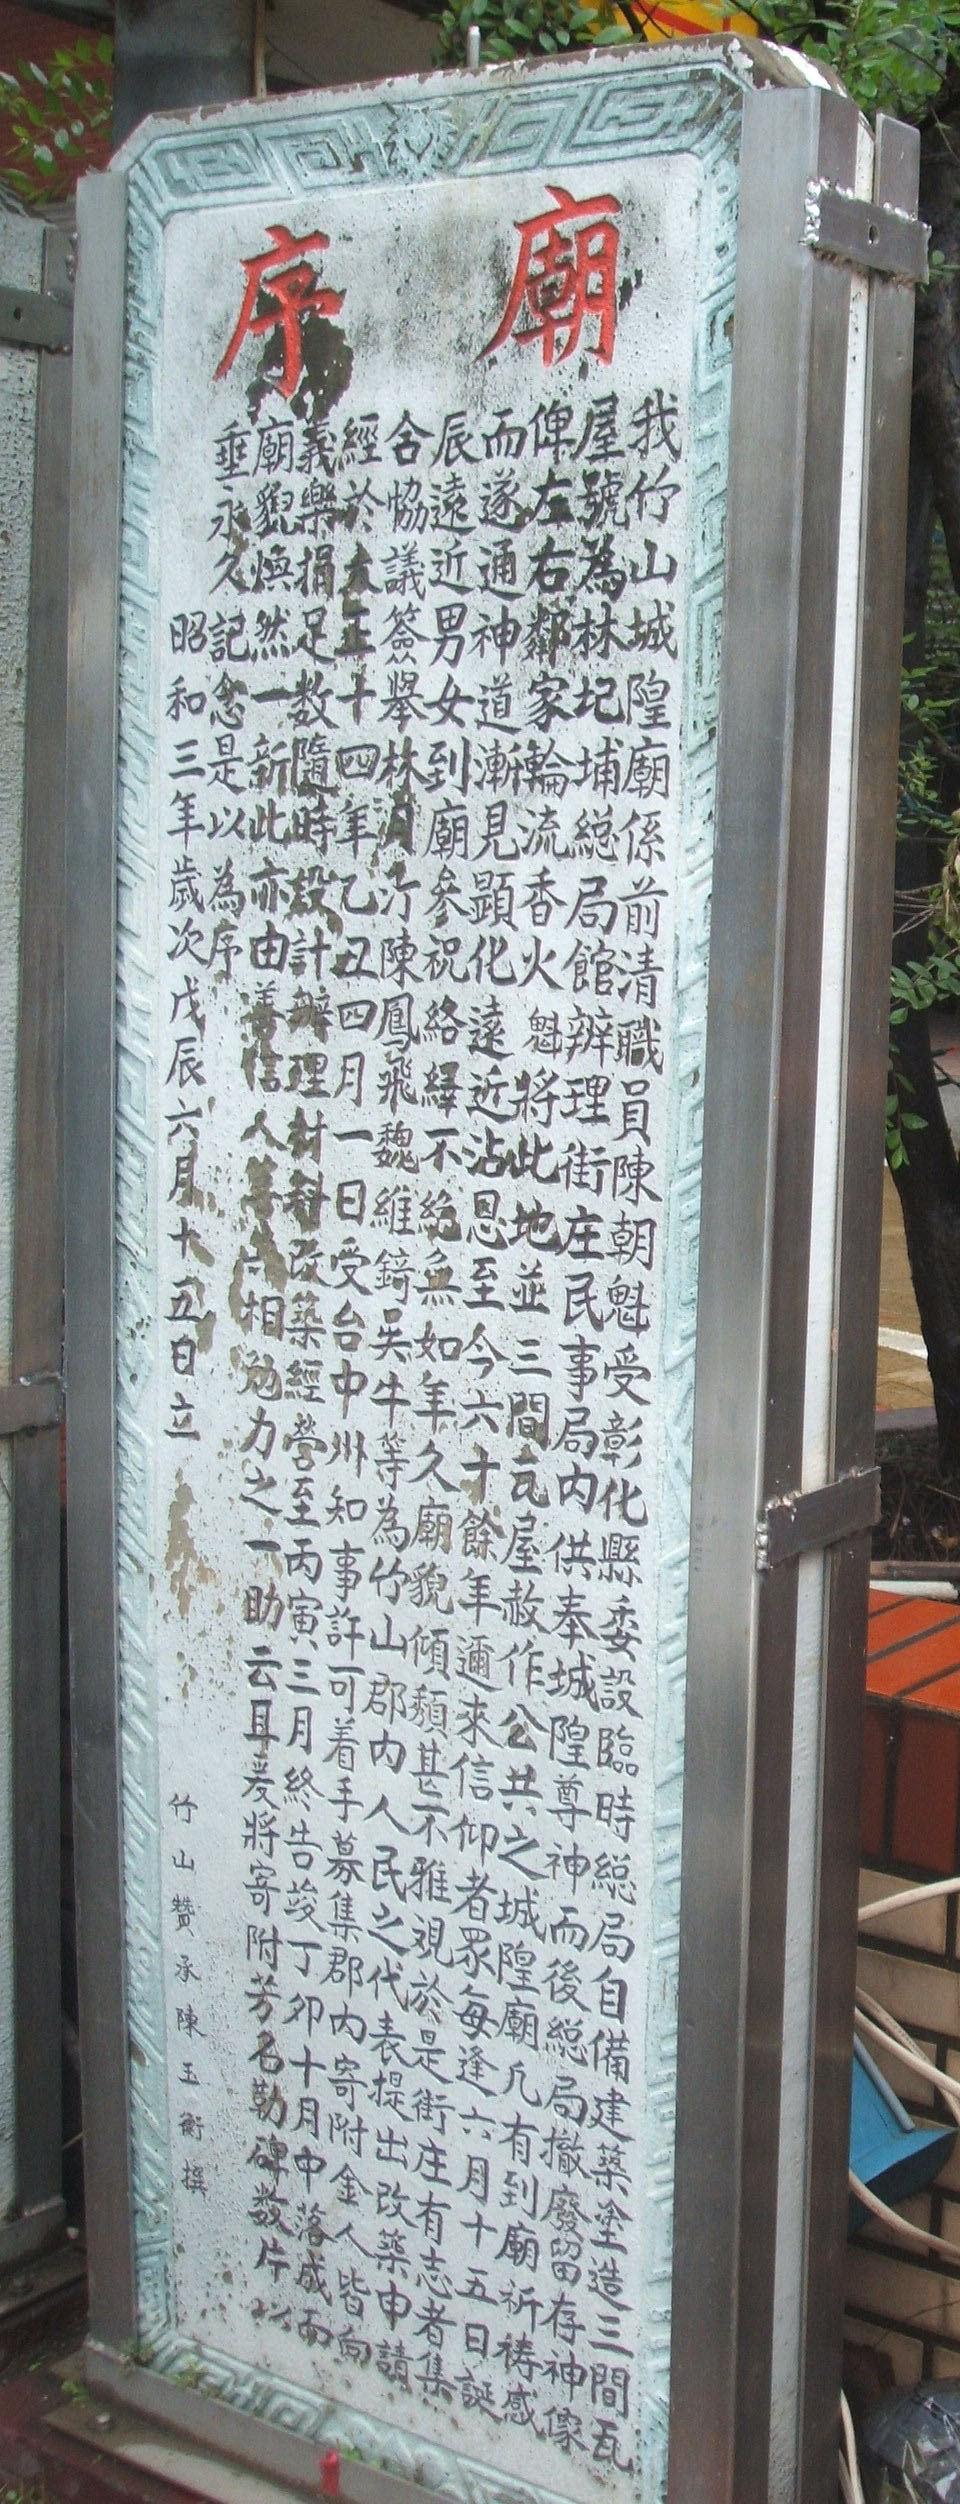 廟序
我竹山城隍廟係前清職員陳朝魁受彰化縣委設臨時總局自備建築塗造三間瓦
屋號為林圮埔總局館辦理街庄民事局內供奉城隍尊神而後總局撤廢留存神像
俾左右鄰家輪流香火魁將此地並三間瓦屋赦作公共之城隍廟凡有到廟祈禱感
而遂通神道漸見顯化遠近沾恩至今六十餘年邇來信仰者眾每逢六月十五日誕
辰遠近男女到廟參祝絡繹不絕無如年久廟貌傾頹甚不雅視於是街庄有志者集
合協議簽舉林月汀陳鳳飛魏維錡吳牛等為竹山郡內人民之代表提出改築申請
經於大正十四年乙丑四月一日受台中州知事許可着手募集郡內寄附金人皆向
義樂捐足數隨時設計辦理材料改築經營至丙寅三月終告竣丁卯十月中落成而
廟貌煥然一新此亦由善信人等相勉力之一助云耳爰將寄附芳名勒碑数片以
垂永久記念是以為序
昭和三年歲次戊辰六月十五日立
竹山贊承陳玉衡撰